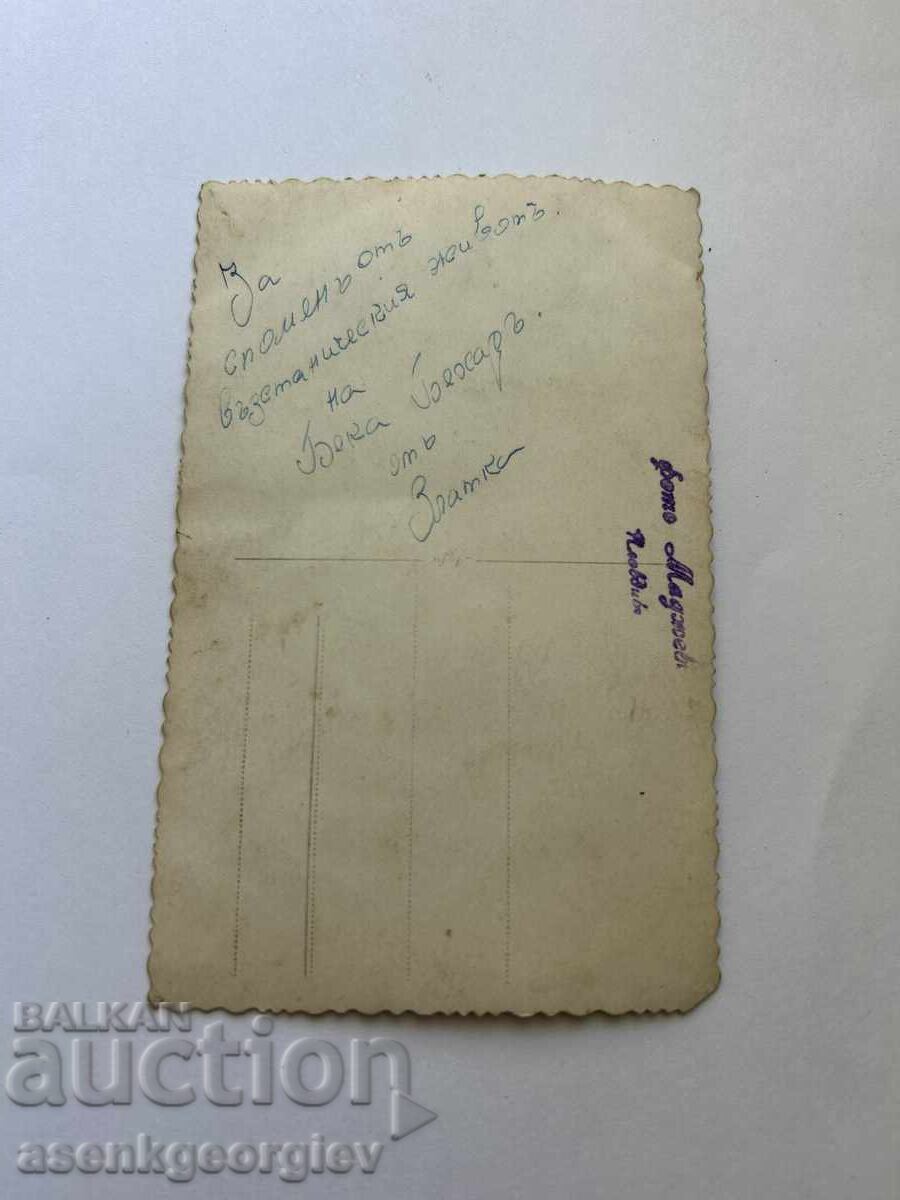 За
споменъ отъ
възстаническия животъ.
на
Бека Бехаръ.
отъ
Златка
Фото Маджев
Пловдивъ
BALKAN
auction
asenkgeorgiev